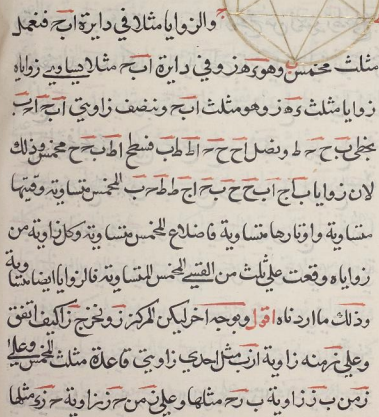 والزوايا مثلا في دايرة ا ب ح فنعمل
مثلث مخمس وهو ء ه ز وفي دايرة ا ب ح مثلا يساوي زواياه
زوايا مثلث ء ه ز وهو مثلث ا ب ح وننصف زاويتي ا ب ح ا ح ب
بخطي ب ح ط ونصل ا ح ح ا ط ط ب فسطح ا ط ب ح ح مخمس وذلك
لان زوايا ب ا ح ا ب ح ح ب ح ا ح ط ط ح ب للخمس متساوية وقسيها
متساوية واوتارها متساوية فاضلاع المخمس متساوية وكل زاوية من
زواياه وقعت على ثلث من القسي الخمس المتساوية فالزوايا ايضا متساوية
وذلك ما اردناه اقول وبوجه اخر ليكن المركز ز ونخرج ز ا كيف اتفق
وعلى ز منه زاوية ا ز ب مثل احدي زاويتي قاعدة مثلث المخمس وعلى
ز من ب ز زاوية ب ز ح مثلها وعلى ز من ح ز زاوية ح ز ء مثلها